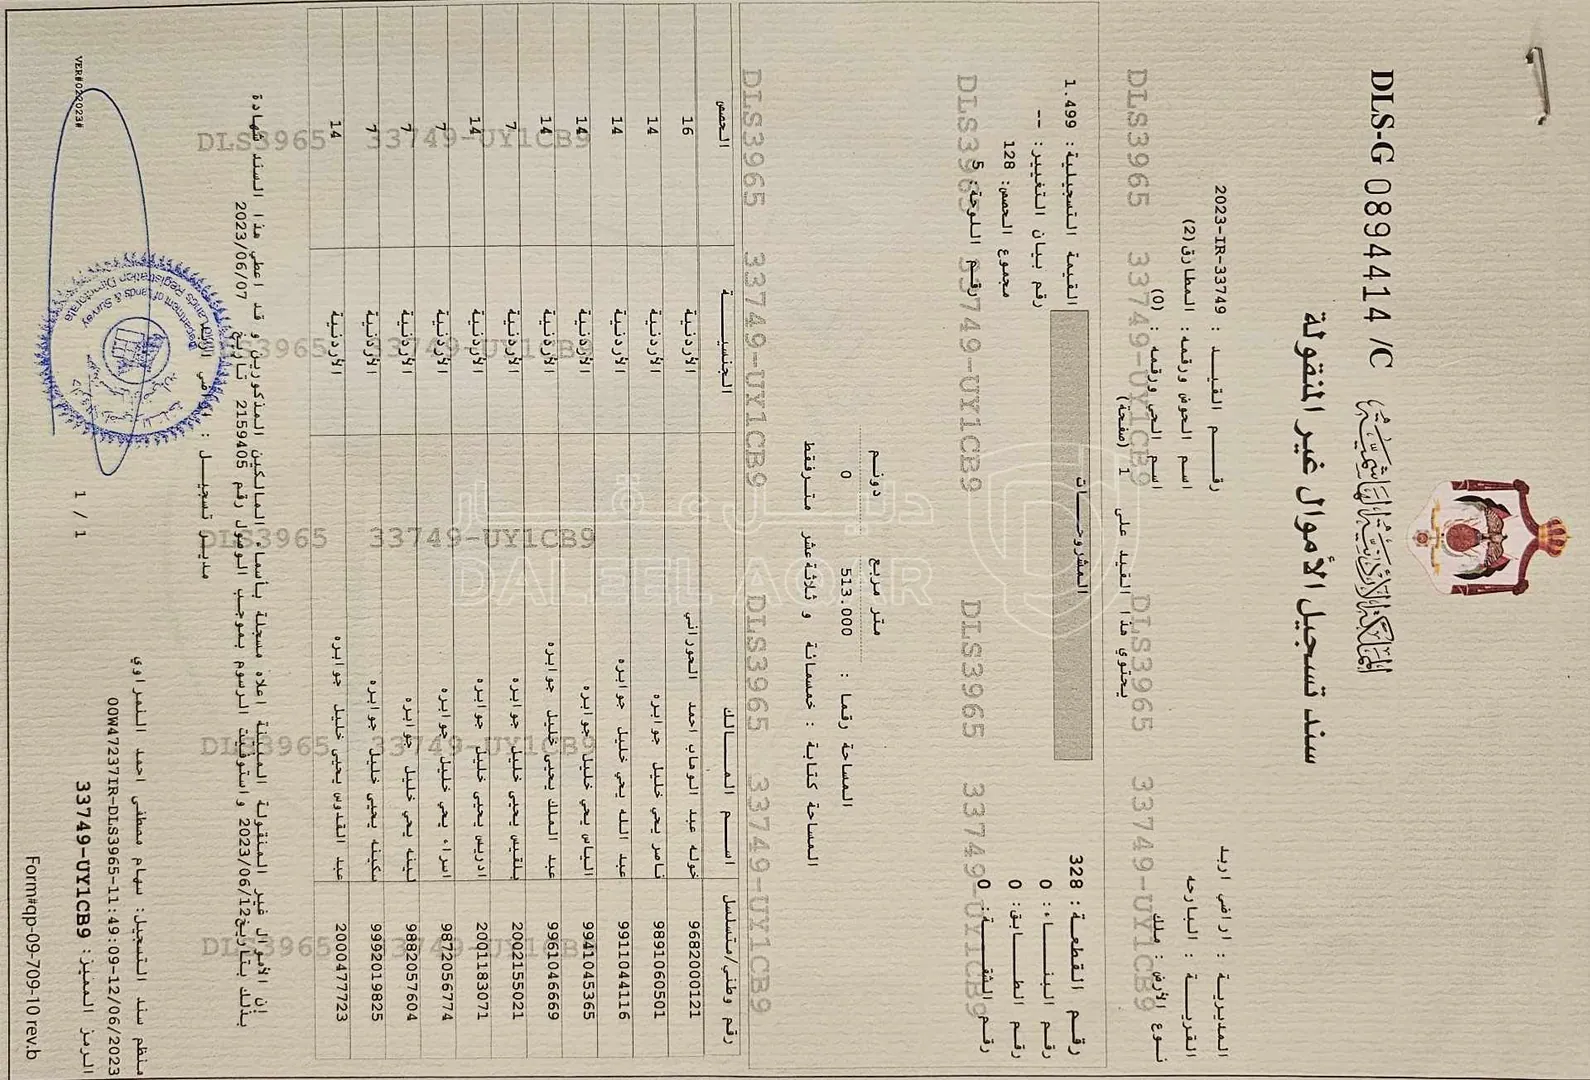 المملكة الأردنية الهاشمية
DLS-G 0894414 /C
سند تسجيل الأموال غير المنقولة
المديرية : اراضي اربد
رقم القيد : 2023-IR-33749
القرية : البارحه
اسم الحوض ورقمه: المطارق(2)
نوع الأرض : ملك
اسم الحي ورقمه : (0)
يحتوي هذا القيد على 1 (صفحة)
DLS3965 33749-UY1CB9 DLS3965 33749-UY1CB9
المشروحات
رقم القطعة: 328
القيمة التسجيلية: 1.499
رقم البناء: 0
رقم بيان التغيير: --
رقم الطابق: 0
مجموع الحصص: 128
رقم الشقة: 0
رقم اللوحة: 5
DLS3965 33749-UY1CB9 DLS3965 33749-UY1CB9
متر مربع دونم
المساحة رقما : 513.000 0
المساحة كتابة : خمسمائة و ثلاثة عشر مترفقط
دليل عقار
DALEEL AQAR
DLS3965 33749-UY1CB9 DLS3965 33749-UY1CB9
رقم وطني/متسلسل اسم المالك الجنسية الحصص
9682000121 خوله عبد الوهاب احمد الحوراني الأردنية 16
9891060501 ناصر يحي خليل جوابره الأردنية 14
9911044116 عبد الله يحي خليل جوابره الأردنية 14
9941045365 الياس يحي خليل جوابره الأردنية 14
9961046669 عبد الملك يحيى خليل جوابره الأردنية 14
2002155021 بلقيس يحيى خليل جوابره الأردنية 7
2001183071 ادريس يحيى خليل جوابره الأردنية 14
9872056774 اسراء يحي خليل جوابره الأردنية 7
9882057604 لينه يحي خليل جوابره الأردنية 7
9992019825 سكينه يحيى خليل جوابره الأردنية 7
2000477723 عبد القدوس يحيى خليل جوابره الأردنية 14
DLS3965 33749-UY1CB9
DLS3965 33749-UY1CB9
DLS3965 33749-UY1CB9
DLS3965 33749-UY1CB9
DLS3965
إن الأموال غير المنقولة المبينة اعلاه مسجلة بأسماء المالكين المذكورين و قد اعطي هذا السند شهادة
بذلك بتاريخ2023/06/12 واستوفيت الرسوم بموجب الوصول رقم 2159405 تاريخ 2023/06/07
مدير تسجيل :
Department of Lands & Survey
Registration Directorate
منظم سند التسجيل: سهام مصطفى احمد النمراوي
00W47237IR-DLS3965-11:49:09-12/06/2023
الرمز المميز: 33749-UY1CB9
1 / 1
VER#022023#
Form#qp-09-709-10 rev.b